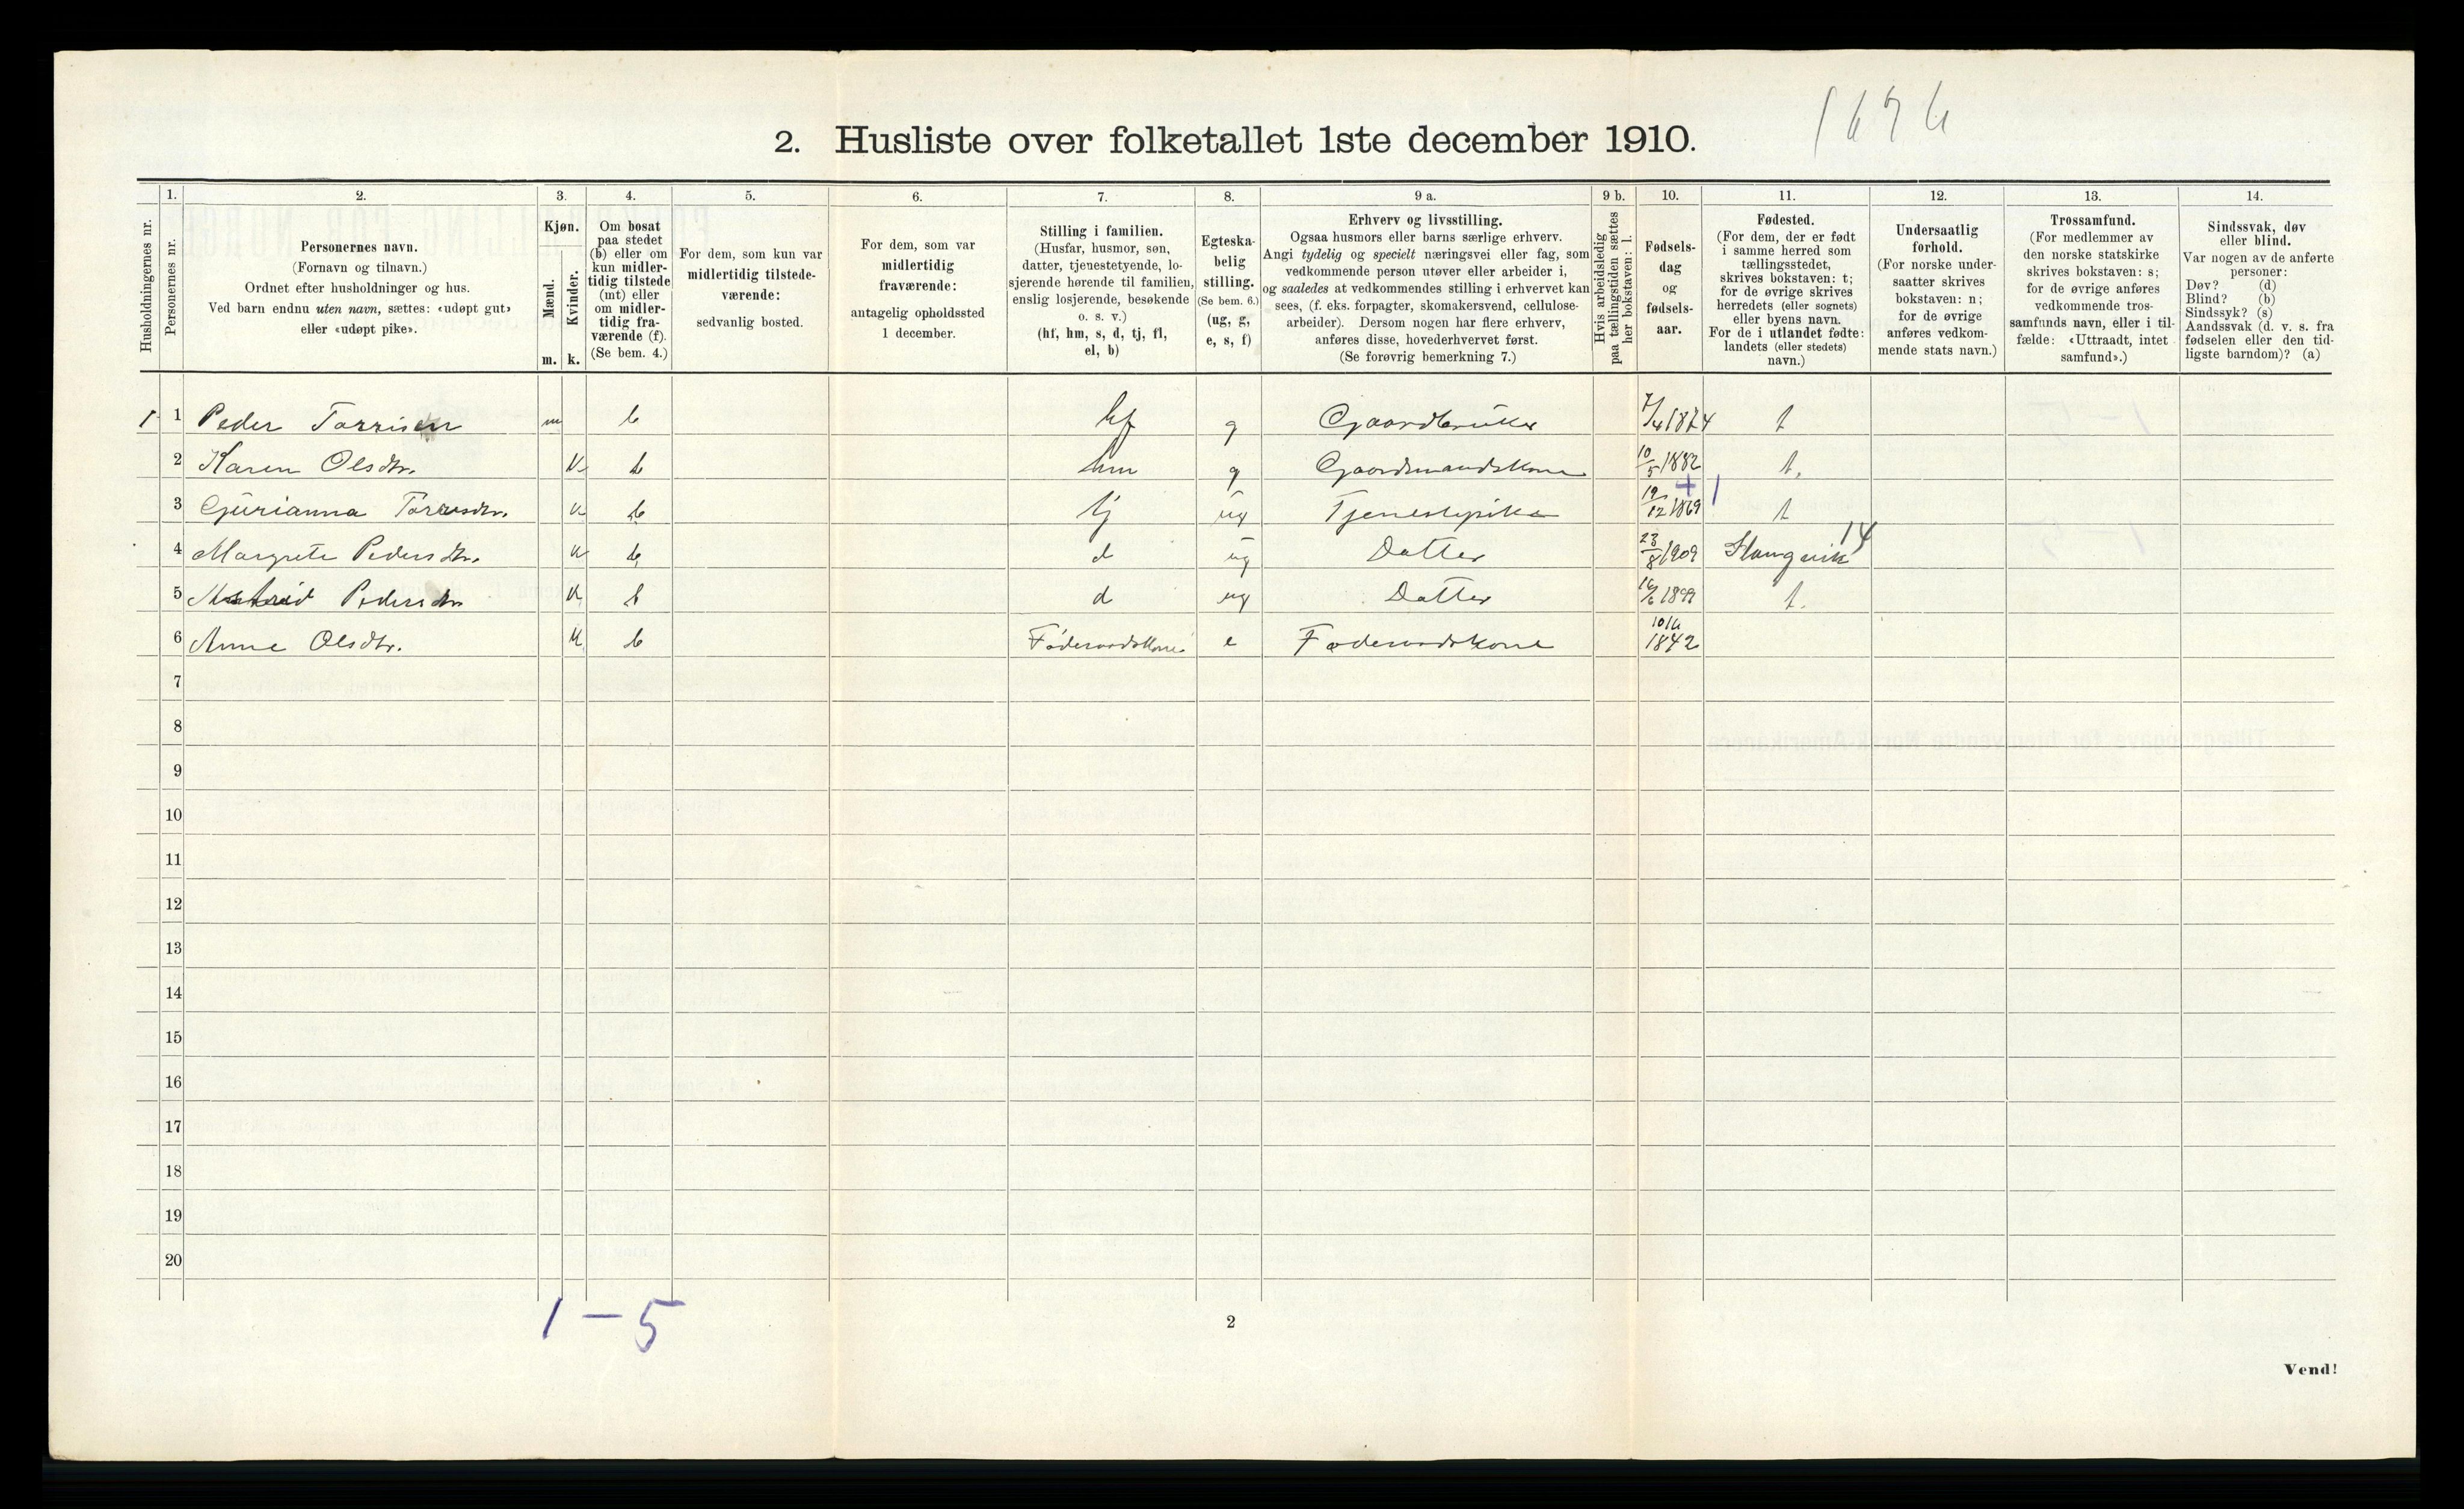 1676
2. Husliste over folketallet 1ste december 1910.
Husholdningernes nr.
1.
Personernes nr.
2.
Personernes navn.
(Fornavn og tilnavn.)
Ordnet efter husholdninger og hus.
Ved barn endnu uten navn, sættes: «udøpt gut»
eller «udøpt pike».
3.
Kjøn.
Mænd.
Kvinder.
m. k.
4.
Om bosat
paa stedet
(b) eller om
kun midler-
tidig tilstede
(mt) eller
om midler-
tidig fra-
værende (f).
(Se bem. 4.)
5.
For dem, som kun var
midlertidig tilstede-
værende:
sedvanlig bosted.
6.
For dem, som var
midlertidig
fraværende:
antagelig opholdssted
1 december.
7.
Stilling i familien.
(Husfar, husmor, søn,
datter, tjenestetyende, lo-
sjerende hørende til familien,
enslig losjerende, besøkende
o. s. v.)
(hf, hm, s, d, tj, fl,
el, b)
8.
Egteska-
belig
stilling.
(Se bem. 6.)
(ug, g,
e, s, f)
9 a.
Erhverv og livsstilling.
Ogsaa husmors eller barns særlige erhverv.
Angi tydelig og specielt næringsvei eller fag, som
vedkommende person utøver eller arbeider i,
og saaledes at vedkommendes stilling i erhvervet kan
sees, (f. eks. forpagter, skomakersvend, cellulose-
arbeider). Dersom nogen har flere erhverv,
anføres disse, hovederhvervet først.
(Se forøvrig bemerkning 7.)
9 b.
Hvis arbeidsledig
paa tællingstiden sættes
her bokstaven: l.
10.
Fødsels-
dag
og
fødsels-
aar.
11.
Fødested.
(For dem, der er født
i samme herred som
tællingsstedet,
skrives bokstaven: t;
for de øvrige skrives
herredets (eller sognets)
eller byens navn.
For de i utlandet fødte:
landets (eller stedets)
navn.)
12.
Undersaatlig
forhold.
(For norske under-
saatter skrives
bokstaven: n;
for de øvrige
anføres vedkom-
mende stats navn.)
13.
Trossamfund.
(For medlemmer av
den norske statskirke
skrives bokstaven: s;
for de øvrige anføres
vedkommende tros-
samfunds navn, eller i til-
fælde: «Uttraadt, intet
samfund».)
14.
Sindssvak, døv
eller blind.
Var nogen av de anførte
personer:
Døv? (d)
Blind? (b)
Sindssyk? (s)
Aandssvak (d. v. s. fra
fødselen eller den tid-
ligste barndom)? (a)
1 1 Peder Torrisen m b hf g Gaardbruker 7/4 1874 t
2 Karen Olsdtr. k b hm g Gaardmandskone 10/5 1882 t.
3 Gurianna Torrisdtr. k b tj ug Tjenestepike 19/12 1869 t
4 Margrete Pedersdtr. k b d ug Datter 23/8 1909 Stangvik 14
5 Pedersdtr k b d ug Datter 16/6 1899 t.
6 Anne Olsdtr. k b Føderaadskone e Føderaadskone 10/6 1842
7
8
9
10
11
12
13
14
15
16
17
18
19
20
1 – 5
2
Vend!